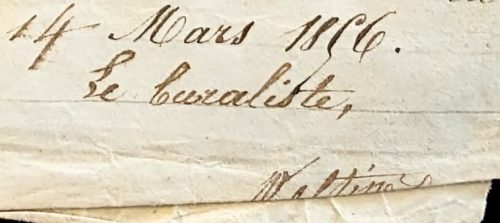 14 Mars 1856.
Le Buraliste,